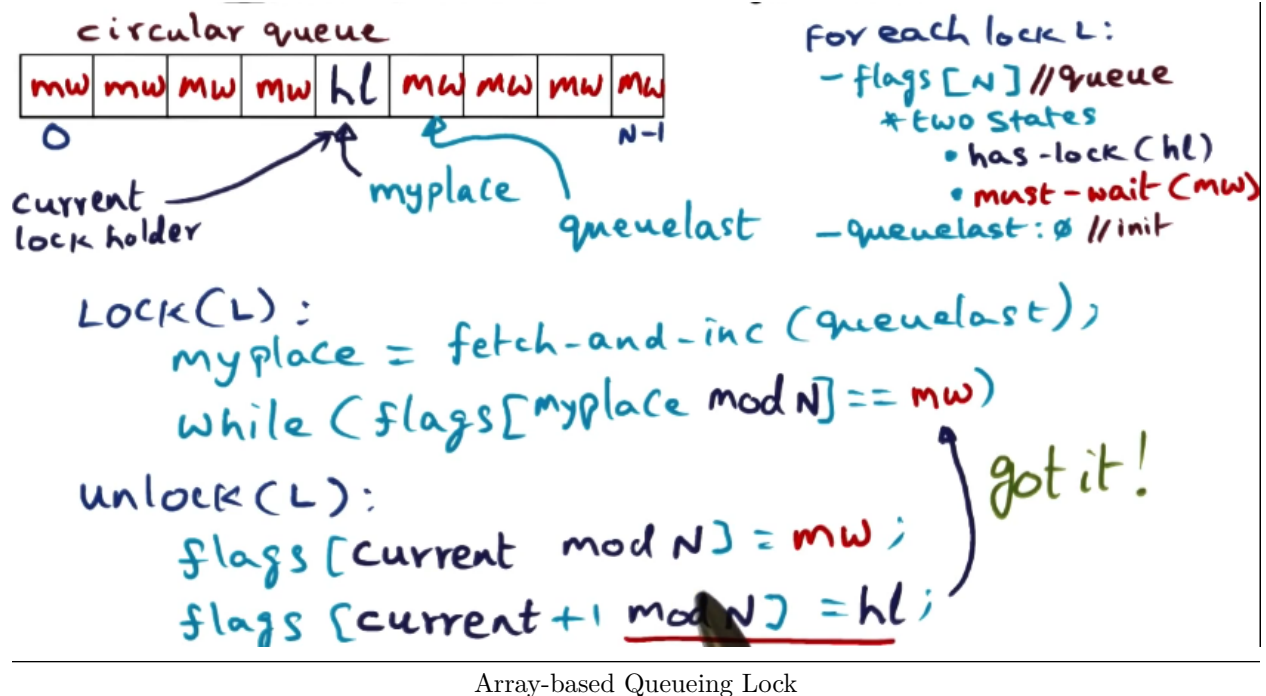 circular queue
mw mw mw mw hl mw mw mw mw
0 N-1
current
lock holder
myplace
queuelast
for each lock L:
- flags [N] //queue
* two states
• has-lock (hl)
• must-wait (mw)
- queuelast: 0 //init
LOCK(L):
myplace = fetch-and-inc (queuelast);
while (flags[myplace mod N] == mw)
unlock(L):
flags [current mod N] = mw;
flags [current+1 mod N] = hl;
got it!
Array-based Queueing Lock